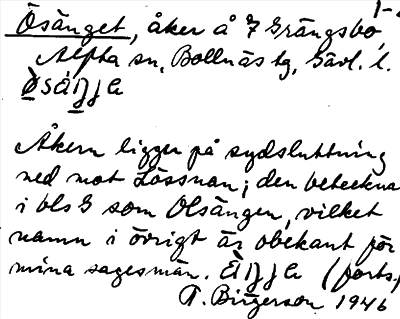 1-2
Ösänget, åker å 7 Grängsbo,
Alfta sn, Bollnäs tg, Gävl. l.
Åkern ligger på sydsluttning
ned mot Lössnan; den beteckna
i bls 3 som Olsängen, vilket
namn i övrigt är obekant för
mina sagesmän. (forts.)
A. Birgerson 1946